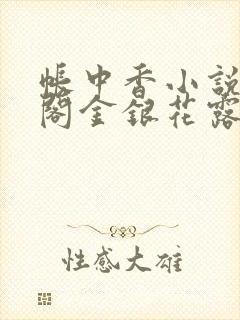 帳中香小說
閣金銀花露
性感大雄